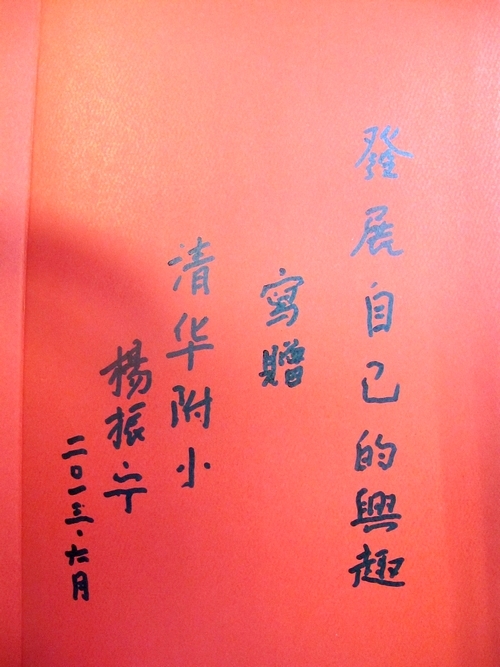 發展自己的興趣
寫贈
清华附小
楊振宁
二〇一三、六月